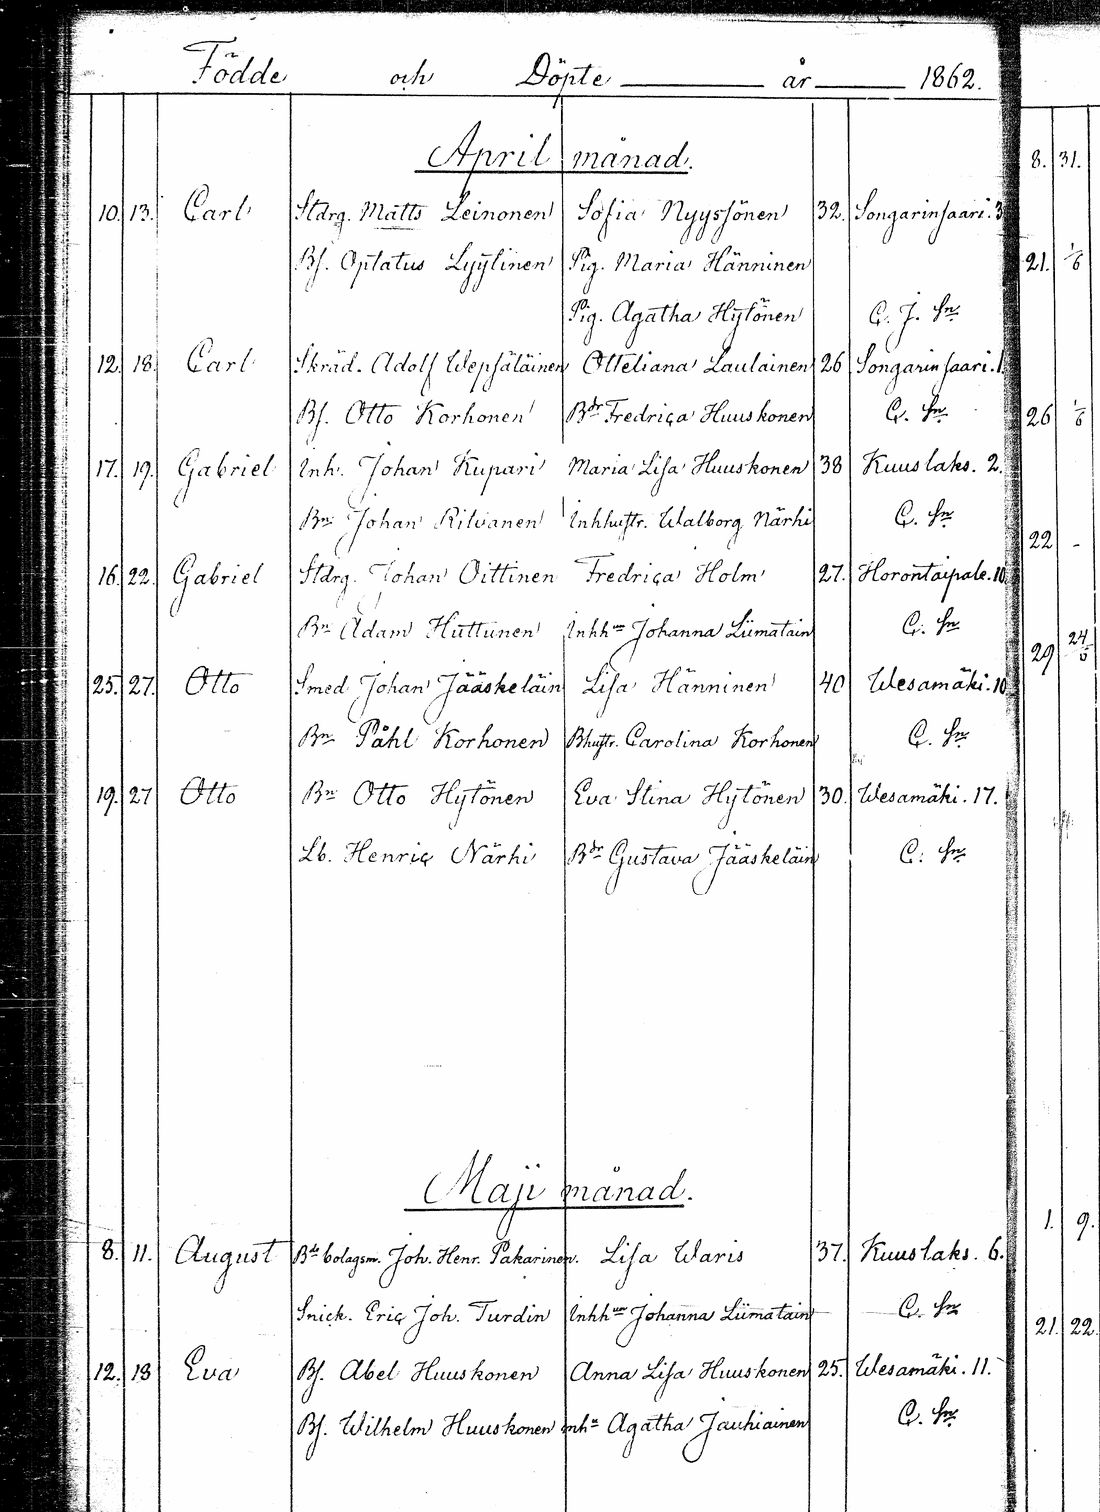 Födde och Döpte år 1862.
April månad.
10. 13. Carl Stdrg. Matts Leinonen Sofia Nyyssönen 32. Songarinsaari. 3
Bs. Optatus Lyylinen Pig. Maria Hänninen
Pig. Agatha Hytönen C. J. Sn
12. 18. Carl Skräd. Adolf Wepsäläinen Otteliana Laulainen 26 Songarinsaari. 1.
Bs. Otto Korhonen Bdr Fredrica Huuskonen C. Sn
17. 19. Gabriel Inh. Johan Kupari Maria Lisa Huuskonen 38 Kuuslaks. 2.
Bn Johan Ritvanen Inhhustr. Walborg Närhi C. Sn
16. 22. Gabriel Stdrg. Johan Oittinen Fredrica Holm 27. Horontaipale. 10.
Bn Adam Huttunen Inhhun Johanna Liimatain C. Sn
25. 27. Otto Smed Johan Jääskeläin Lisa Hänninen 40 Wesamäki. 10
Bn Påhl Korhonen Bhustr. Carolina Korhonen C. Sn
19. 27 Otto Bn Otto Hytönen Eva Stina Hytönen 30. Wesamäki. 17.
Lb. Henric Närhi Bdr Gustava Jääskeläin C. Sn
Maji månad.
8. 11. August Bde bolagsm. Joh. Henr. Pakarinen. Lisa Waris 37. Kuuslaks. 6.
Snick. Eric Joh. Turdin Inhhun Johanna Liimatain C. Sn
12. 18 Eva Bs. Abel Huuskonen Anna Lisa Huuskonen 25. Wesamäki. 11.
Bs. Wilhelm Huuskonen Inhn Agatha Jauhiainen C. Sn
8. 31.
21. 1/6
26 1/6
22 -
29 24/6
1. 9.
21. 22.